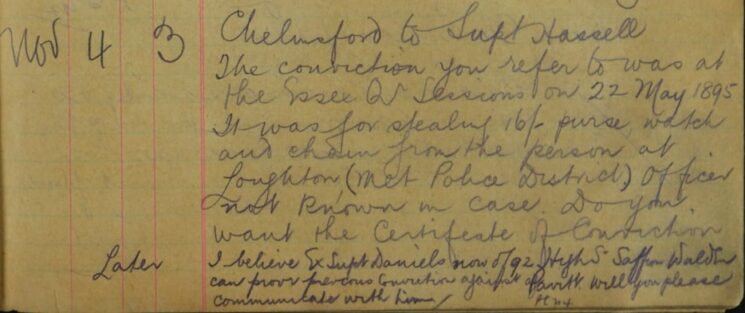 Nov 4 3 Chelmsford to Supt Hassell
The conviction you refer to was at
the Essex Qr Sessions on 22 May 1895
It was for stealing 16/- purse, watch
and chain from the person at
Loughton (Met Police District) Officer
not known in case. Do you
want the Certificate of Conviction
Later I believe Ex Supt Daniels now of 92 High St Saffron Walden
can prove previous Conviction against Pavitt will you please
communicate with him